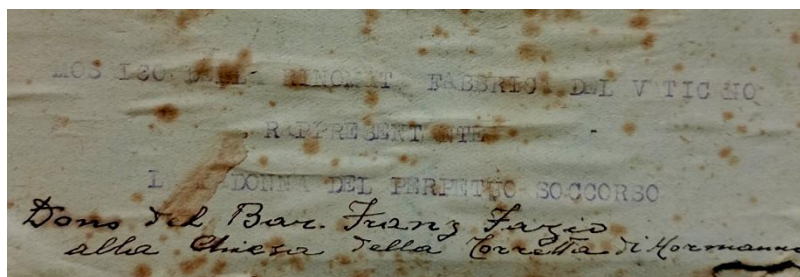 MOSAICO DELLA RINOMATA FABBRICA DEL VATICANO
RAPPRESENTANTE
LA MADONNA DEL PERPETUO SOCCORSO
Dono del Bar. Franz Fazio
alla Chiesa della Torretta di Mormanno